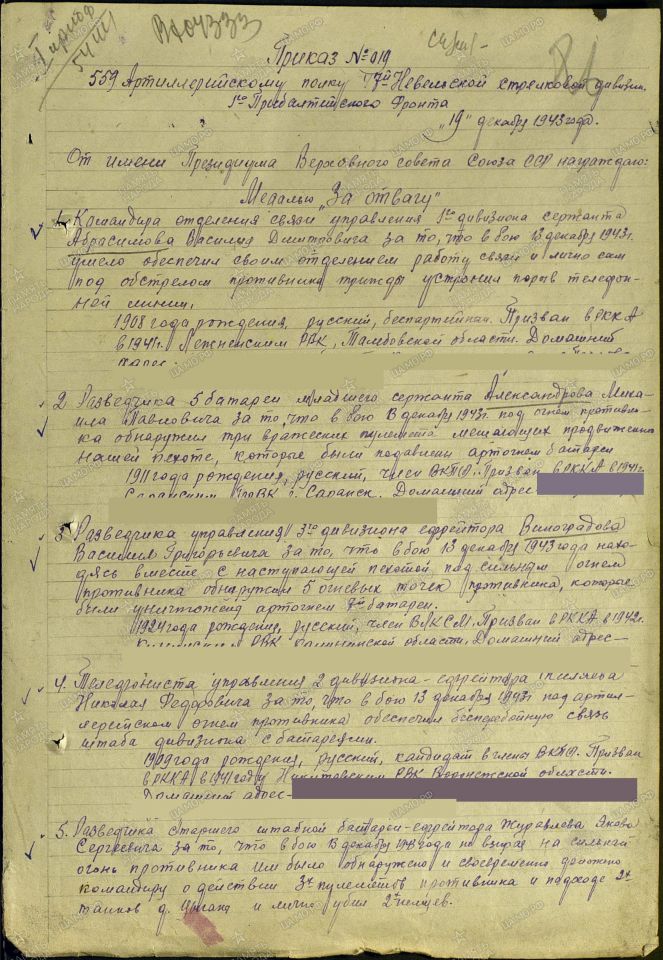 I период
54 III
В/04333
Приказ № 019
559 Артиллерийскому полку 47й Невельской стрелковой дивизии.
1го Прибалтийского Фронта
"19" декабря 1943 года.
От имени Президиума Верховного совета Союза ССР награждаю:
Медалью "За отвагу"
1. Командира отделения связи управления 1го дивизиона сержанта
Абрасимова Василия Дмитровича за то, что в бою 13 декабря 1943г.
умело обеспечил своим отделением работу связи и лично сам
под обстрелом противника трижды устранил порыв телефон-
ной линии.
1908 года рождения, русский, беспартейный. Призван в РККА
в 1941г. РВК, Тамбовской области. Домашний
адрес.
2. Разведчика 5 батареи младшего сержанта Александрова Миха-
ила Павловича за то, что в бою 13 декабря 1943г. под огнем противни-
ка обнаружил три вражеских пулемета мешающих продвижению
нашей пехоте, которые были подавлены артогнем батареи
1911 года рождения, русский, член ВКПб. Призван в РККА в 1941г.
Саранским РВК г. Саранск. Домашний адрес-
3. Разведчика управления 3го дивизиона ефрейтора Виноградова
Василия Григорьевича за то, что в бою 13 декабря 1943 года нахо-
дясь вместе с наступающей пехотой под сильным огнем
противника обнаружил 5 огневых точек противника, которые
были уничтожены артогнем батареи.
1924 года рождения, русский, член ВЛКСМ. Призван в РККА в 1942г.
РВК Калининской области. Домашний адрес-
4. Телефониста управления 2 дивизиона - ефрейтора
Николая Федоровича за то, что в бою 13 декабря 1943г под артил-
лерийском огнем противника обеспечил бесперебойную связь
штаба дивизиона с батареями.
1909 года рождения, русский, кандидат в члены ВКПб. Призван
в РККА в 1941 году Никитовским РВК Воронежской области.
Домашний адрес-
5. Разведчика старшего штабной батареи - ефрейтора Журавлева Якова
Сергеевича за то, что в бою 13 декабря 1943 года не взирая на сильный
огонь противника им было обнаружено и своевременно доложено
командиру о действии 3х пулеметов противника и подходе 2х
танков д. и лично убил 2 немцев.